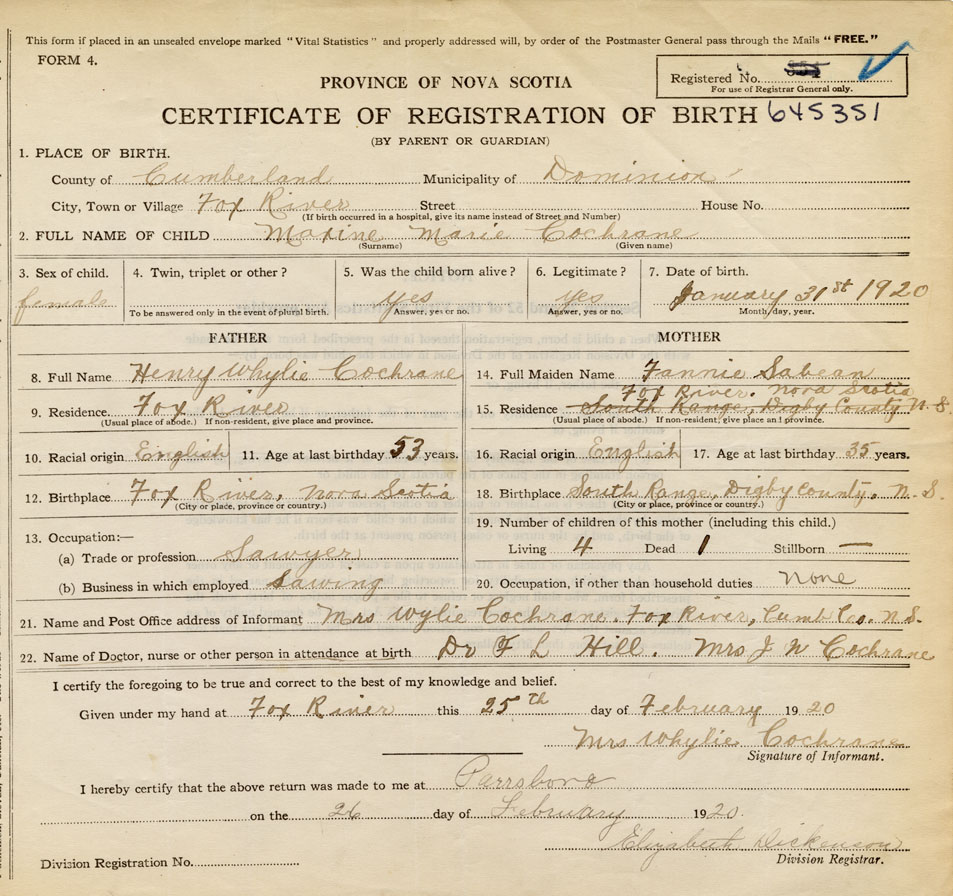 This form if placed in an unsealed envelope marked "Vital Statistics" and properly addressed will, by order of the Postmaster General pass through the Mails "FREE."
FORM 4.
Registered No.
For use of Registrar General only.
PROVINCE OF NOVA SCOTIA
CERTIFICATE OF REGISTRATION OF BIRTH 645351
(BY PARENT OR GUARDIAN)
1. PLACE OF BIRTH.
County of Cumberland Municipality of Dominion
City, Town or Village Fox River Street House No.
(If birth occurred in a hospital, give its name instead of Street and Number)
2. FULL NAME OF CHILD Maxine Marie Cochrane
(Surname) (Given name)
3. Sex of child. 4. Twin, triplet or other? 5. Was the child born alive? 6. Legitimate? 7. Date of birth.
female yes yes January 31st 1920
To be answered only in the event of plural birth. Answer, yes or no. Answer, yes or no. Month, day, year.
FATHER
8. Full Name Henry Whylie Cochrane
9. Residence. Fox River
(Usual place of abode.) If non-resident, give place and province.
10. Racial origin English 11. Age at last birthday 53 years.
12. Birthplace Fox River, Nova Scotia
(City or place, province or country.)
13. Occupation:—
(a) Trade or profession Sawyer
(b) Business in which employed Sawing
MOTHER
14. Full Maiden Name Fannie Sabean
Fox River. Nova Scotia
15. Residence South Range, Digby County N.S.
(Usual place of abode.) If non-resident, give place and province.
16. Racial origin English 17. Age at last birthday 35 years.
18. Birthplace South Range, Digby County, N.S.
(City or place, province or country.)
19. Number of children of this mother (including this child.)
Living 4 Dead 1 Stillborn —
20. Occupation, if other than household duties None
21. Name and Post Office address of Informant Mrs Wylie Cochrane. Fox River, Cumb Co. N.S.
22. Name of Doctor, nurse or other person in attendance at birth Dr F L Hill. Mrs J W Cochrane
I certify the foregoing to be true and correct to the best of my knowledge and belief.
Given under my hand at Fox River this 25th day of February 1920
Mrs Whylie Cochrane
Signature of Informant.
I hereby certify that the above return was made to me at Parrsboro
on the 26 day of February 1920.
Elizabeth Dickenson
Division Registration No. Division Registrar.